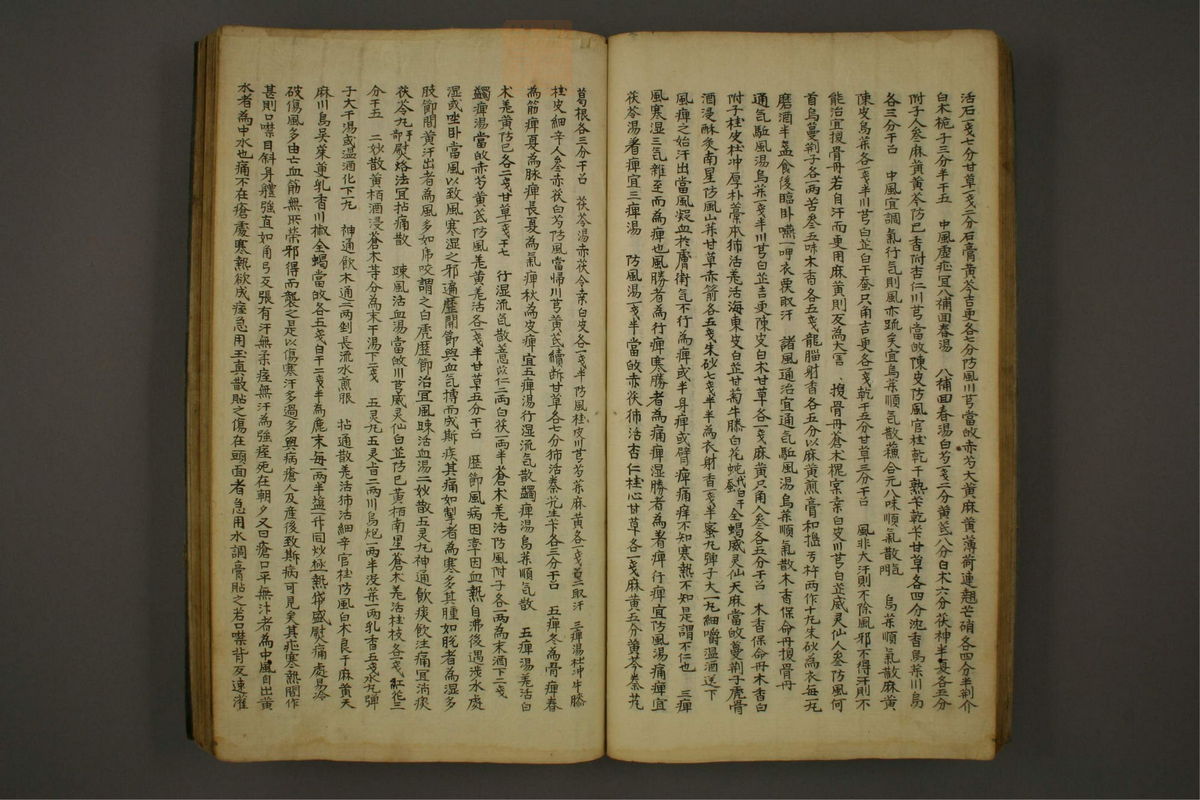 活石一戔七分甘草一戔二分石膏黃芩吉更各七分防風川芎當皈赤芍大黃麻黃薄荷連翹芒硝各四分半荊介
白朮梔子三分半干五 中風虛症宜八補回春湯 八補回春湯白芍一戔二分黃芪八分白朮六分茯神半夏各五分
附子人參麻黃黃芩防已香附杏仁川芎當皈陳皮防風官桂乾干熟芐乾芐甘草各四分沈香烏藥川烏
各三分干召 中風宜調氣行气則風亦疏矣宜烏藥順氣散兼合元八味順氣散 烏藥順气散麻黃
陳皮烏藥各二戔半川芎白芷白干蚕只角吉更各一戔乾干五分甘草三分干召 風非大汗則不除風邪不得汗則不
能治宜搜骨丹若自汗而更用麻黃則反為大害 搜骨丹蒼朮槐宲桒白皮川芎白芷威灵仙人參防風何
首烏蔓荊子各一兩苦參五味木香各五戔龍腦射香各五分以麻黃煎膏和搗万杵兩作十丸朱砂為衣每一丸
磨酒半盞食後臨卧嚥一呷衣覆取汗 諸風通治宜通气駈風湯烏藥順氣散木香保命丹搜骨丹
通气駈風湯烏藥一戔半川芎白芷吉更陳皮白朮甘草各一戔麻黃只角人參各五分干召 木香保命丹木香白
附子桂皮杜冲厚朴藁本独活羌活海東皮白芷甘菊牛膝白花蛇蚕全蝎威灵仙天麻當皈蔓荊子虎骨
酒浸酥炙南星防風山藥甘草赤箭各五戔朱砂七戔半半為衣射香一戔半蜜丸彈子大一丸細嚼溫酒送下
風痺之始汗出當風凝血於膚衛气不行為痺或半身痺或臂痺痛痒不知寒熱不知是謂不仁也 三痺
風寒湿三氣雜至而為痺也風勝者為行痺寒勝者為痛痺湿勝者為着痺行痺宜防風湯痛痺宜
茯苓湯着痺宜三痺湯 防風湯一戔半當皈赤茯独活杏仁桂心甘草各一戔麻黃五分黃芩秦艽
葛根各三分干召 茯苓湯赤茯令桒白皮各一戔半防風桂皮川芎芍藥麻黃各一戔取汗 三痺湯杜冲牛膝
桂皮細辛人參赤茯白芍防風當帰川芎黃芪續断甘草各七分独活秦艽生芐各三分干召 五痺冬為骨痺春
為筋痺夏為脉痺長夏為氣痺秋為皮痺宜五痺湯行湿流气散蠲痺湯烏藥順气散 五痺湯羌活白
朮羌黃防已各二戔甘草一戔干七 行湿流气散薏以仁二兩白茯一兩半蒼朮羌活防風附子各一兩為末酒下二戔
蠲痺湯當皈赤芍黃芪防風羌黃羌活各一戔半甘草五分干召 歷節風病因率因血熱自沸後遇渉水處
湿或坐卧當風以致風寒湿之邪遍歷関節與血气搏而成斯疾其痛如掣者為寒多其腫如脱者為湿多
肢節間黃汗出者為風多如帍咬謂之白虎歷節治宜風踈活血湯二妙散五灵丸神通飲痰飲注痛宜消痰
茯苓丸手部慰烙法宜拈痛散 踈風活血湯當皈川芎威灵仙白芷防已黃栢南星蒼朮羌活桂枝各一戔紅花三
分干五 二妙散黃栢酒浸蒼朮等分為末干湯下二戔 五灵丸五灵旨二兩川烏炮一兩半没藥一兩乳香五戔水丸彈
子大干湯或溫酒化下一丸 神通飲木通二兩剉長流水煎服 拈通散羌活独活細辛官桂防風白朮良干麻黃天
麻川烏吳茱萸乳香川椒全蝎當皈各五戔白干二戔半為麄末每一兩半塩一升同炒極熱袋盛慰痛處易冷
破傷風多由亡血筋無所榮邪得而襲之是以傷寒汗多過多與病瘡人及產後致斯病可見矣其症寒熱間作
甚則口噤目斜身體強直如角弓反張有汗無柔痓無汗為強痓死在朝夕又曰瘡口平無汁者為中風自出黃
水者為中水也痛不在瘡處寒熱欲成痓急用玉真散貼之傷在頭面者急用水調膏貼之若口噤背反速灌